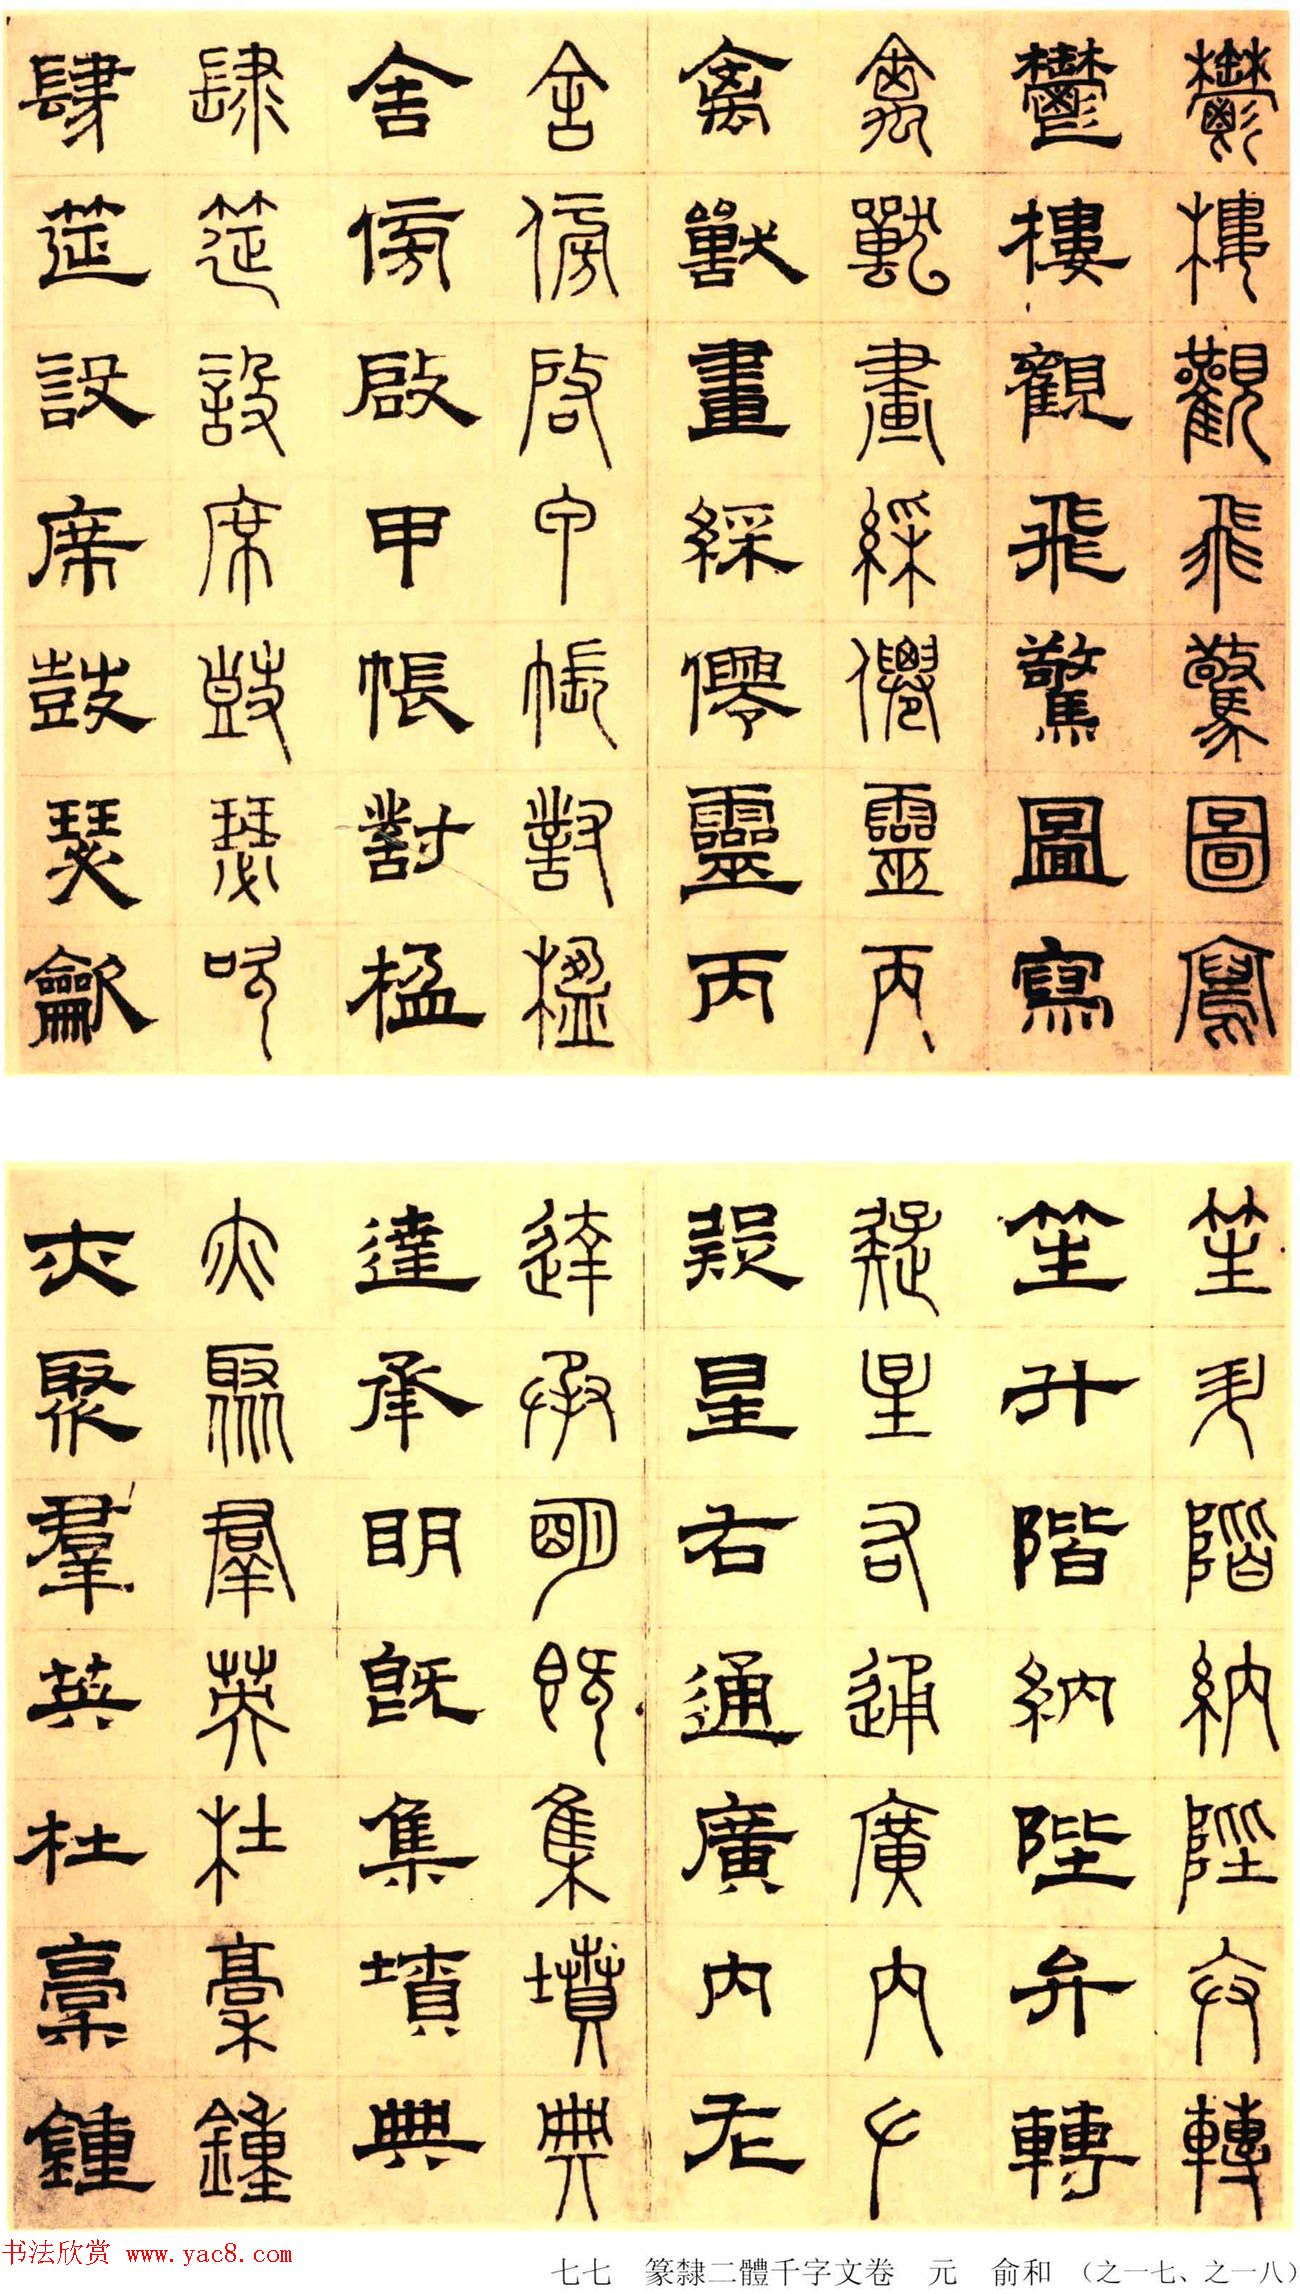 鬱樓觀飛驚圖寫
鬱樓觀飛驚圖寫
禽獸畫綵僊靈丙
禽獸畫綵僊靈丙
舍傍啟甲帳對楹
舍傍啟甲帳對楹
肆筵設席鼓瑟吹
肆筵設席鼓瑟龡
笙升階納陛弁轉
笙升階納陛弁轉
疑星右通廣內左
疑星右通廣內左
達承明既集墳典
達承明既集墳典
亦聚羣英杜稾鍾
亦聚羣英杜稾鍾
书法欣赏 www.yac8.com
七七 篆隸二體千字文卷 元 俞和 （之一七、之一八）